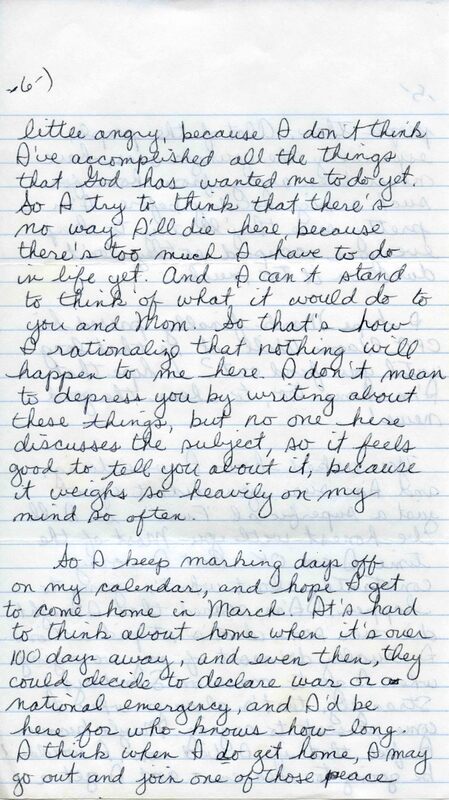 -6-)
little angry, because I don't think
I've accomplished all the things
that God has wanted me to do yet.
So I try to think that there's
no way I'll die here because
there's too much I have to do
in life yet. And I can't stand
to think of what it would do to
you and Mom. So that's how
I rationalize that nothing will
happen to me here. I don't mean
to depress you by writing about
these things, but no one here
discusses the subject, so it feels
good to tell you about it, because
it weighs so heavily on my
mind so often.
So I keep marking days off
on my calendar, and hope I get
to come home in March. It's hard
to think about home when it's over
100 days away, and even then, they
could decide to declare war or a
national emergency, and I'd be
here for who knows how long.
I think when I do get home, I may
go out and join one of those peace